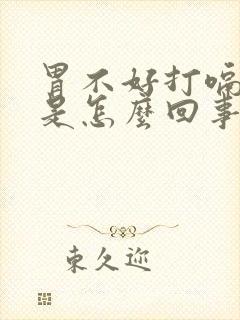 胃不好打嗝
是怎麽回事
東久迩